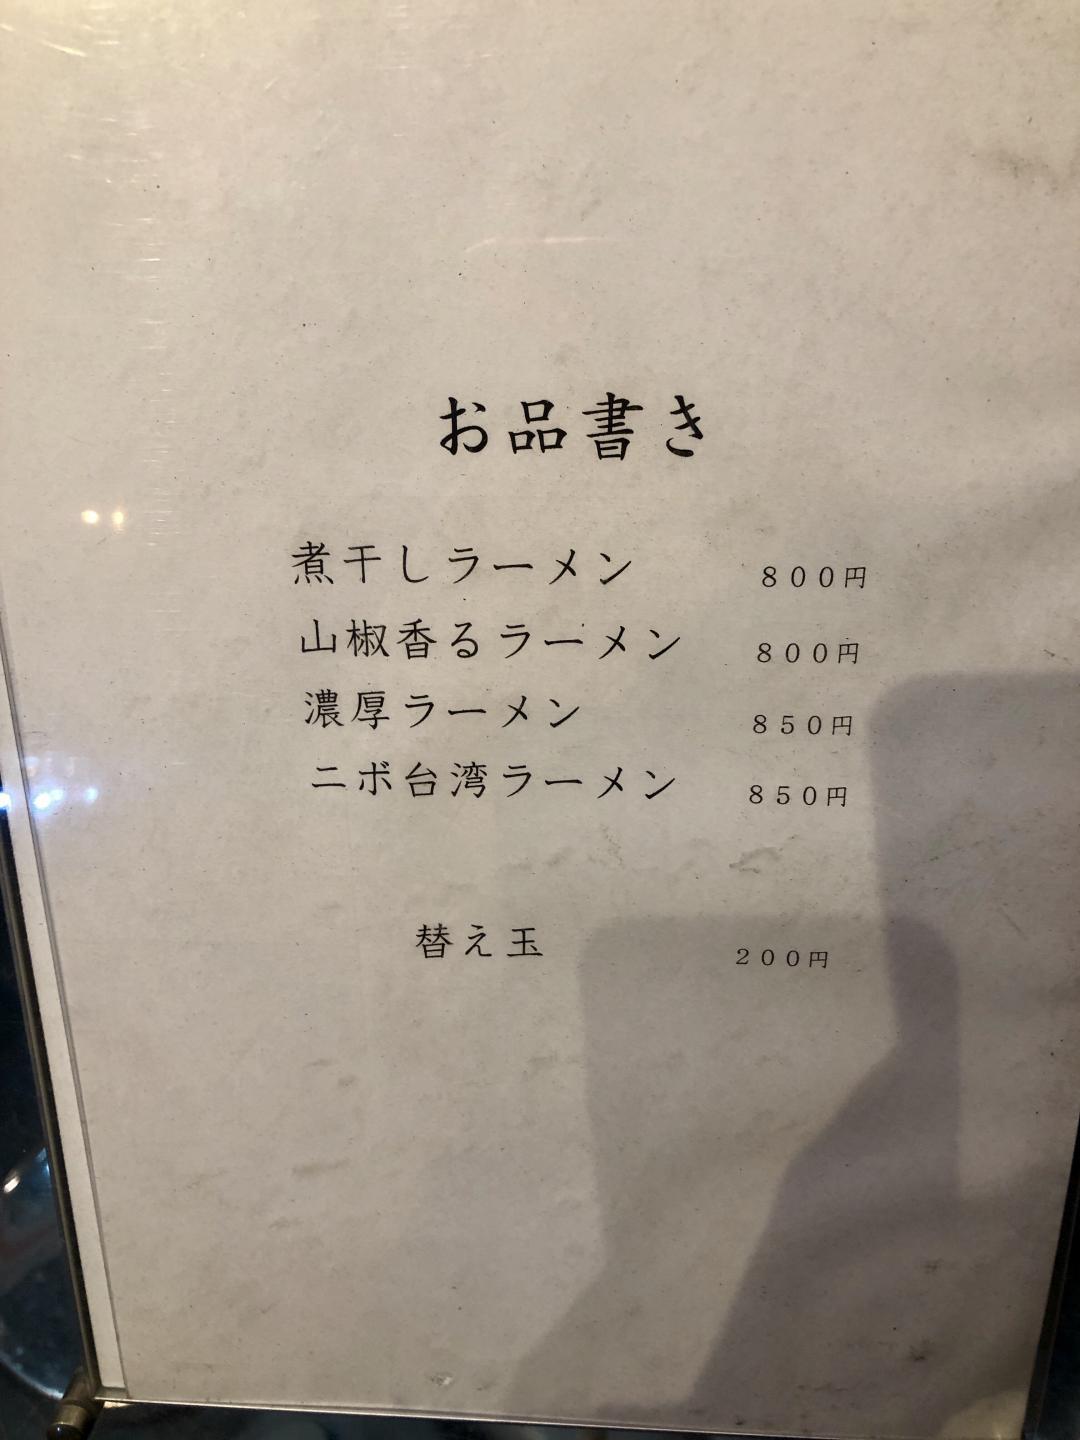 お品書き
煮干しラーメン 800円
山椒香るラーメン 800円
濃厚ラーメン 850円
ニボ台湾ラーメン 850円
替え玉 200円